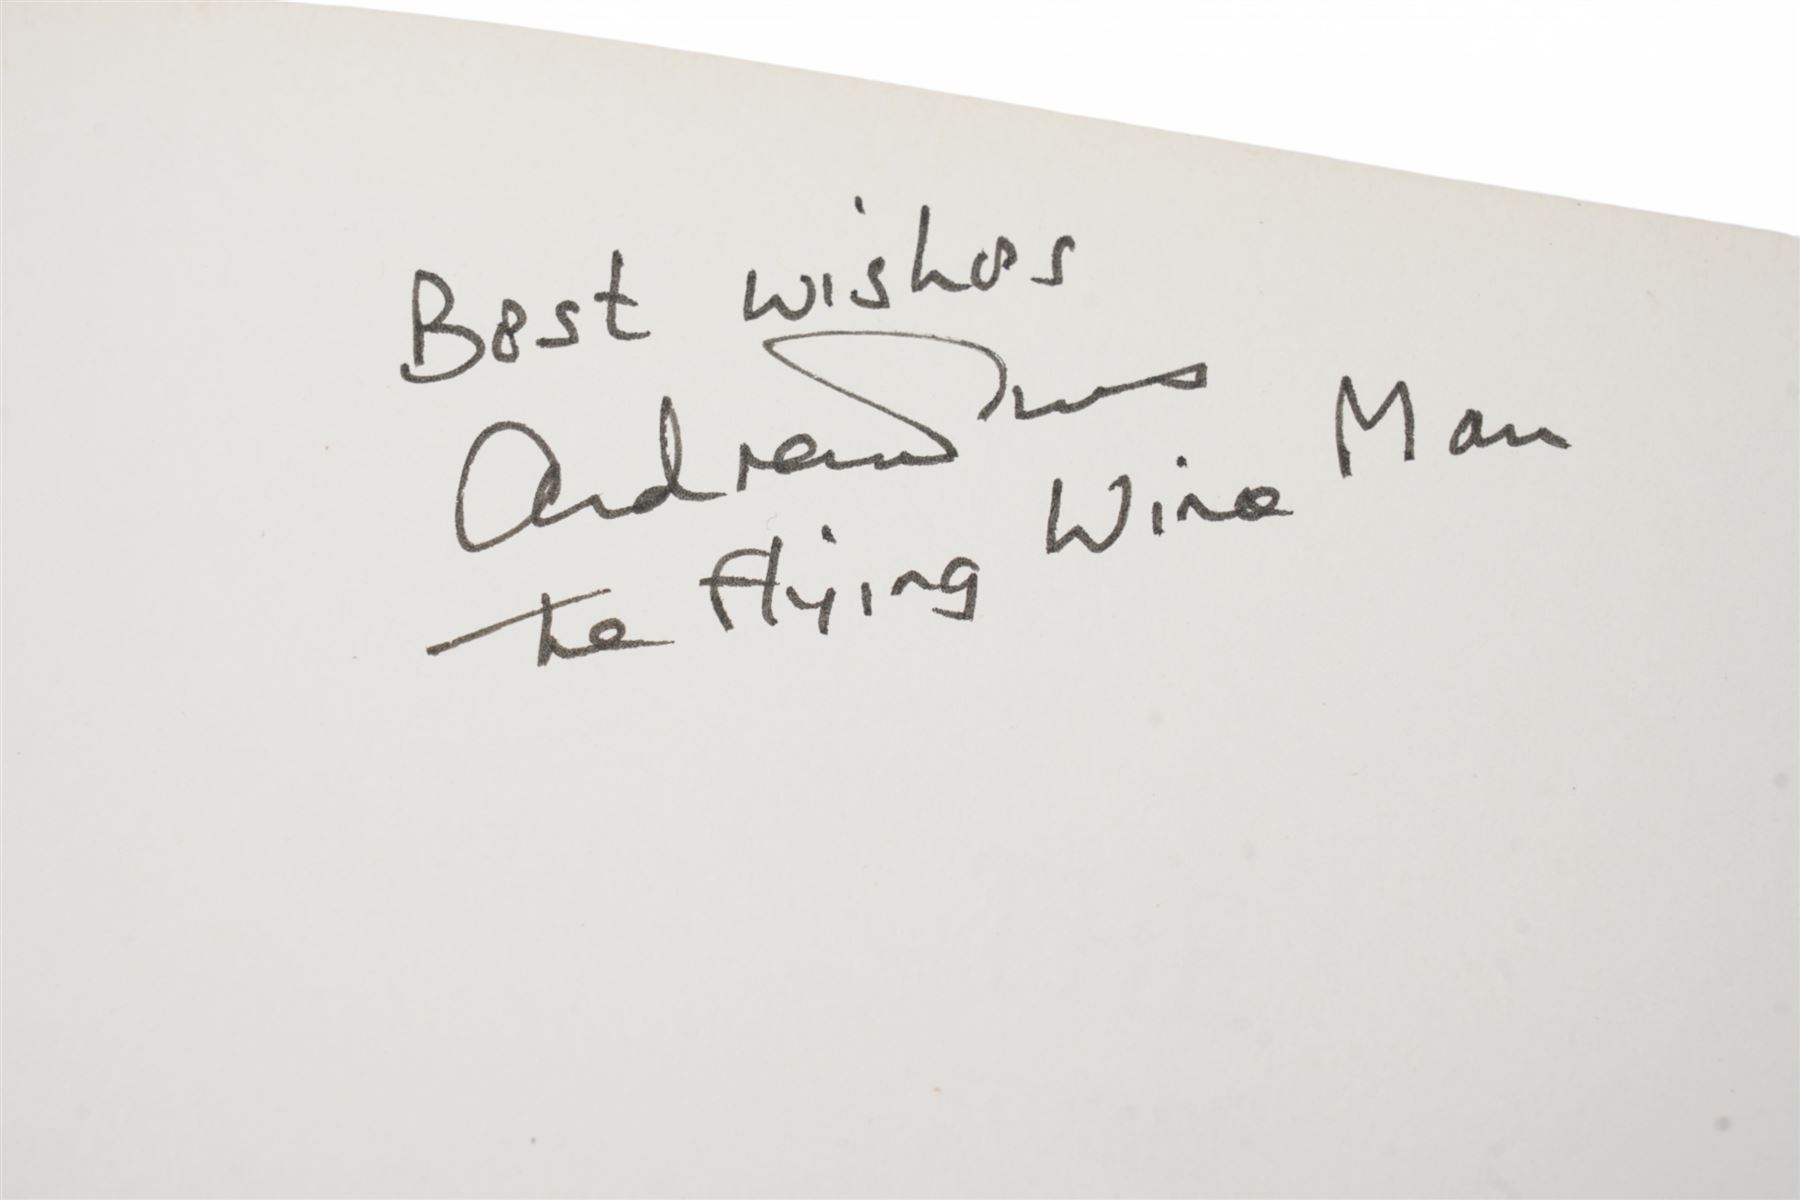 Best wishes
Andrew
the Flying Wine Man